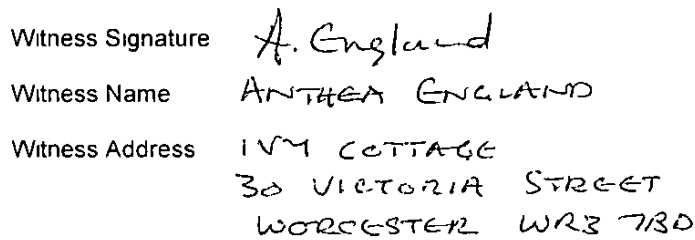 Witness Signature A. England
Witness Name ANTHEA ENGLAND
Witness Address IVY COTTAGE
30 VICTORIA STREET
WORCESTER WR3 7BD